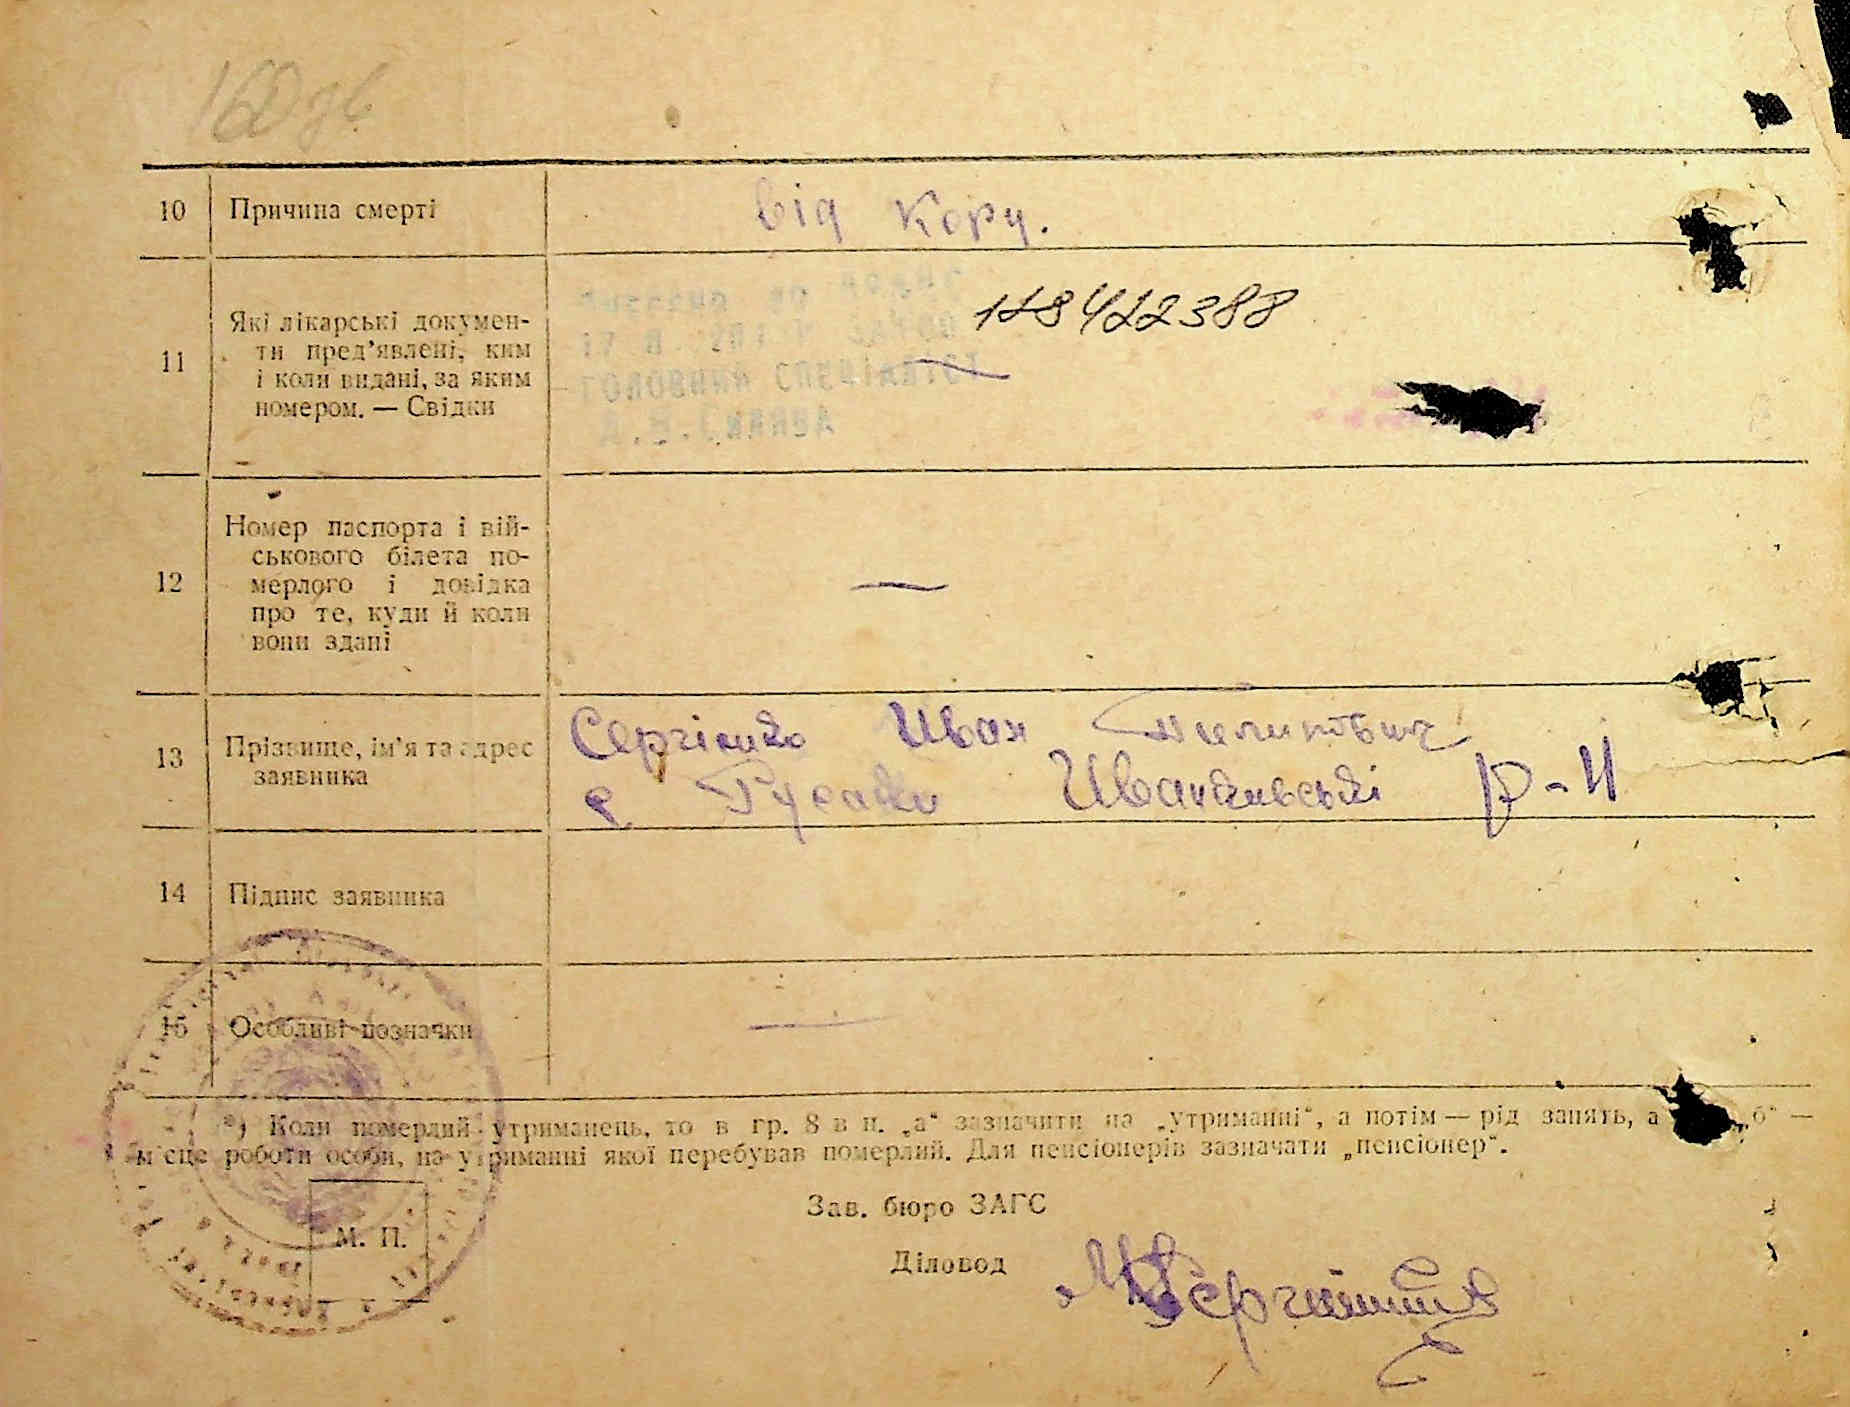 160 зв
10 Причина смерті від кору.
11 Які лікарські докумен-
ти пред'явлені, ким
і коли видані, за яким
номером. — Свідки
118422388
ГОЛОВНИЙ СПЕЦІАЛІСТ
12 Номер паспорта і вій-
ськового білета по-
мерлого і довідка
про те, куди й коли
вони здані —
13 Прізвище, ім'я та адрес
заявника
Сергієнко Иван
с Русаки р-н
14 Підпис заявника
15 Особливі позначки —
*) Коли померлий утриманець, то в гр. 8 в п. „а“ зазначити на „утриманні“, а потім — рід занять, а „б“ —
місце роботи особи, на утриманні якої перебував померлий. Для пенсіонерів зазначати „пенсіонер“.
Зав. бюро ЗАГС
М. П.
Діловод